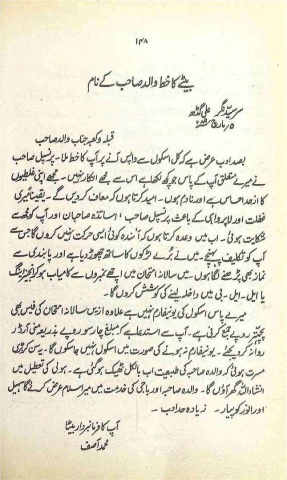 ۱۴۸
بیٹے کا خط والد صاحب کے نام
سرسید نگر علی گڑھ
۵ مارچ
قبلہ و کعبہ جناب والد صاحب
بصد ادب عرض ہے کہ کل اسکول سے واپس آنے پر آپ کا خط ملا۔ پرنسپل صاحب
نے میرے متعلق آپ کے پاس جو کچھ لکھا ہے اس سے مجھے انکار نہیں۔ مجھے اپنی غلطیوں
کا از حد احساس ہے اور نادم ہوں۔ امید کرتا ہوں کہ معاف کر دیں گے۔ یقیناً میری
غفلت اور لاپرواہی کے باعث پرنسپل صاحب، اساتذہ صاحبان اور آپ کو مجھ سے
شکایت ہوئی۔ اب میں وعدہ کرتا ہوں کہ آئندہ کوئی ایسی حرکت نہیں کروں گا جس سے
آپ کو تکلیف پہنچے۔ میں نے بُرے لڑکوں کا ساتھ چھوڑ دیا ہے اور پابندی سے
نماز بھی پڑھنے لگا ہوں۔ میں سالانہ امتحان میں اچھے نمبروں سے کامیاب ہو کر انجینئرنگ
یا ایل۔ ایل۔ بی میں داخلہ لینے کی کوشش کروں گا۔
میرے پاس اسکول کی یونیفارم نہیں ہے علاوہ ازیں سالانہ امتحان کی فیس بھی
پچھتر روپے جمع کرنی ہے۔ آپ سے استدعا ہے کہ مبلغ چار سو روپے بذریعہ منی آرڈر
روانہ کر دیجئے۔ یونیفارم نہ ہونے کی صورت میں میں اسکول نہیں جا سکوں گا۔ یہ سن کر بڑی
مسرت ہوئی کہ والدہ صاحبہ کی طبیعت اب بالکل ٹھیک ہو گئی ہے۔ ہولی کی تعطیل میں
انشاء اللہ گھر آؤں گا۔ والدہ صاحبہ اور باجی کی خدمت میں میرا سلام عرض کر دیں گے سہیل
اور انور کو پیار۔ زیادہ حد ادب۔
آپ کا فرمانبردار بیٹا
محمد آصف